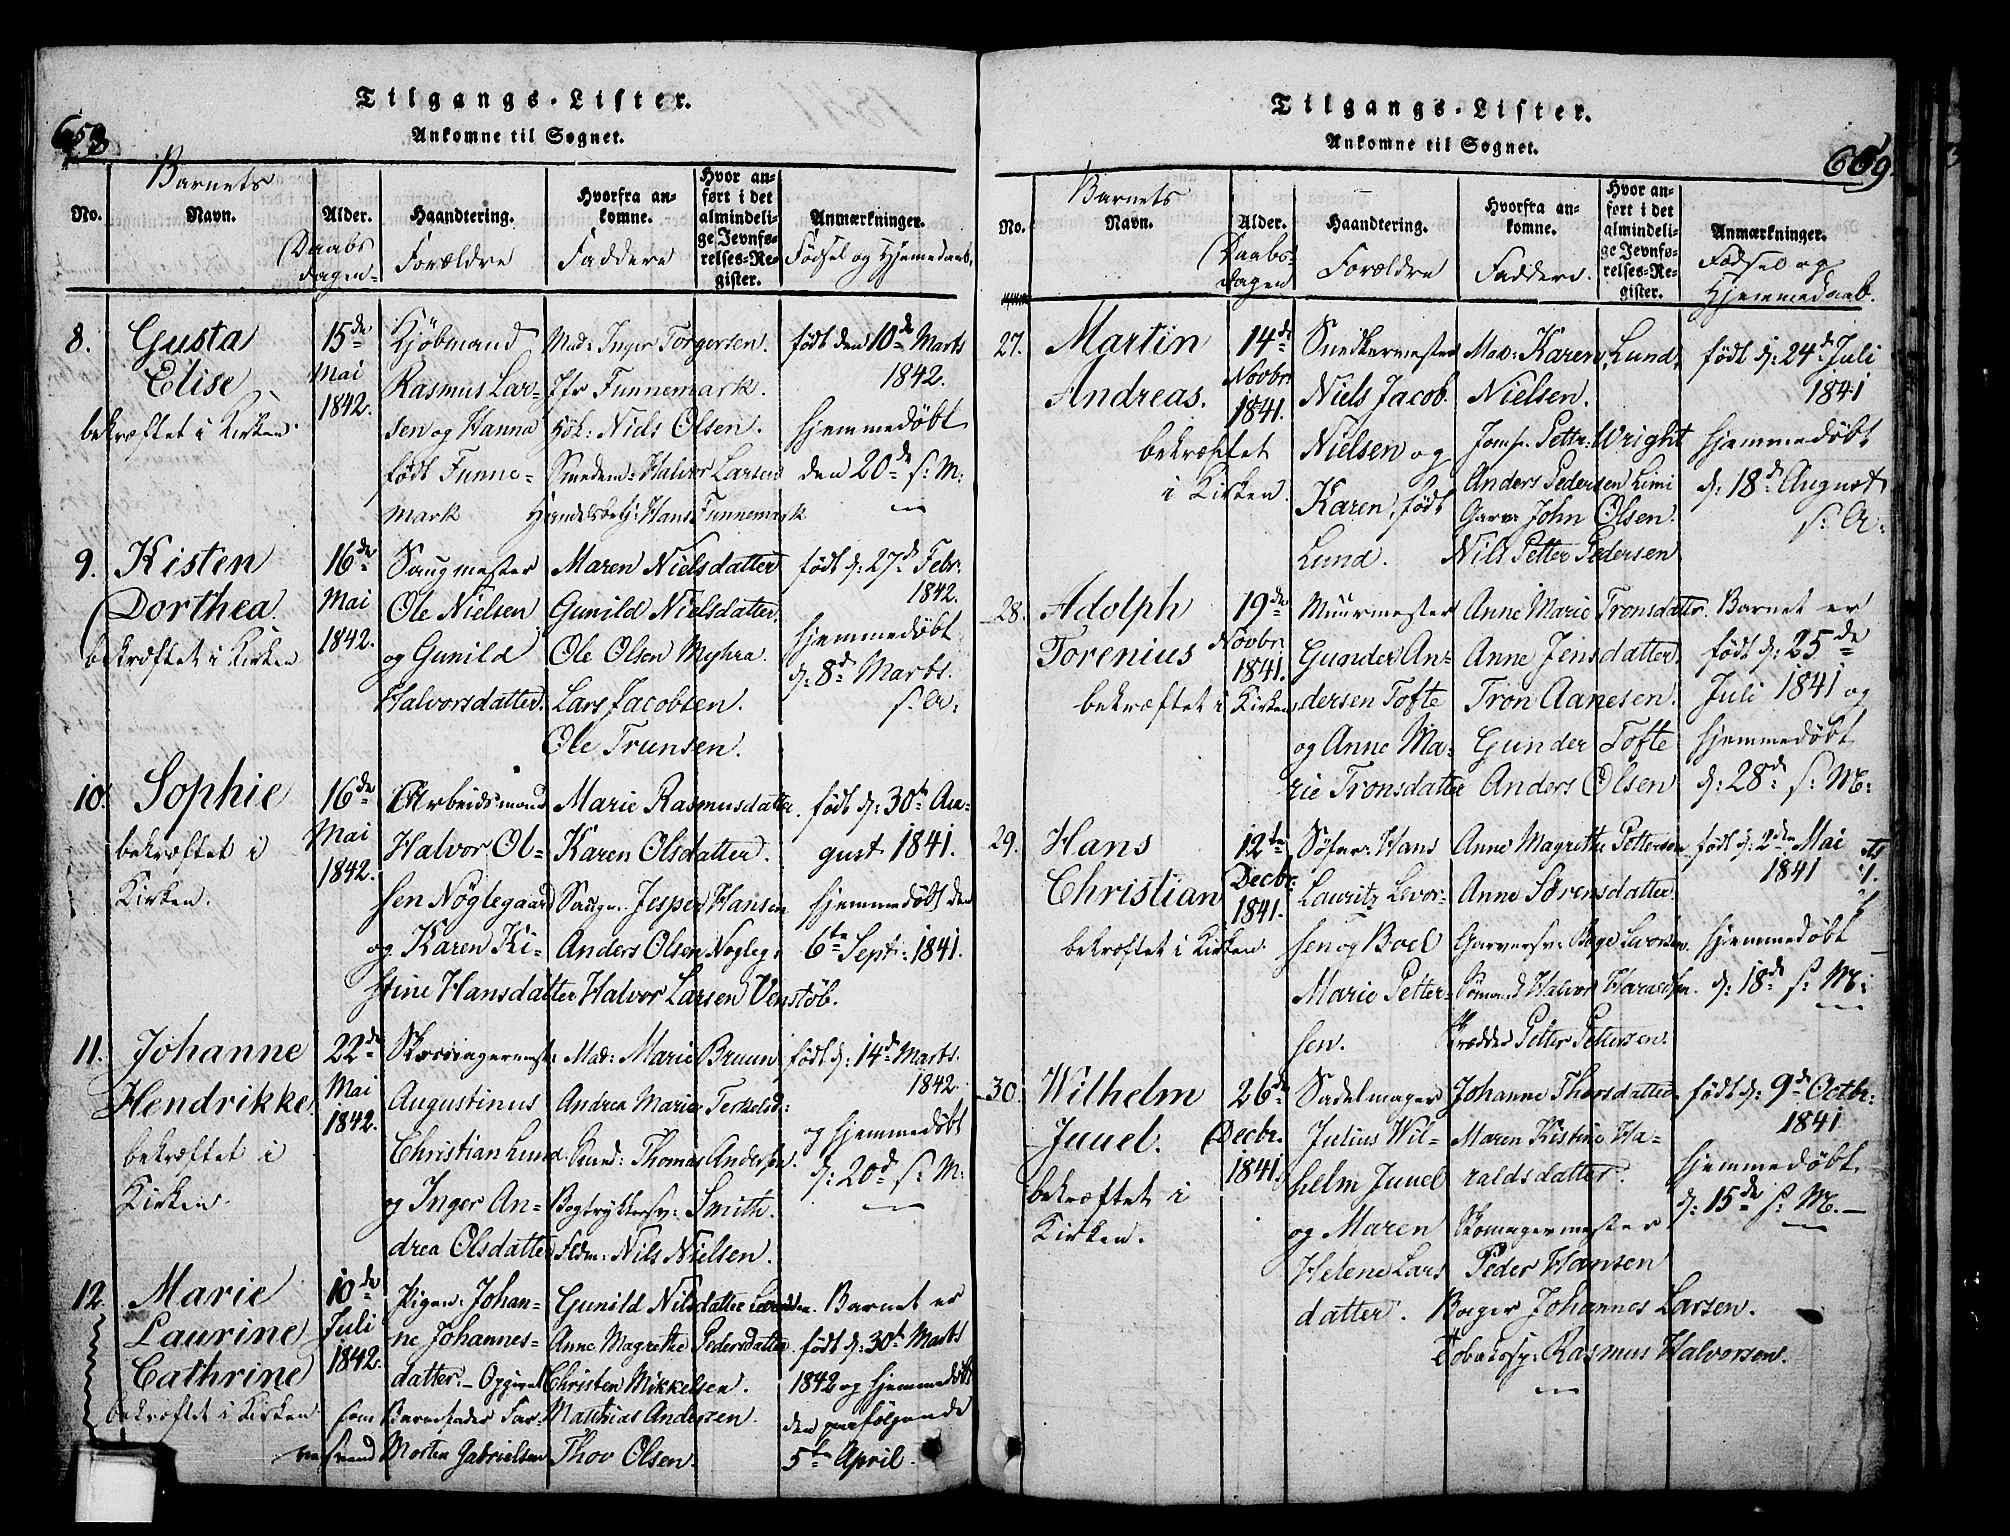 658
Tilgangs-Lister.
Ankomne til Sognet.
No.
Barnets
Navn.
Alder.
Daabs
dagen
Haandtering.
Forældre
Hvorfra an-
komne.
Faddere
Hvor an-
ført i det
almindeli-
ge Jevnfø-
relses-Re-
gister.
Anmærkninger.
Fødsel og Hjemmedaab.
8.
Gusta
Elise
bekræftet i Kirken.
15de
Mai
1842.
Kjöbmand
Rasmus Lar-
sen og Hanna
født Funne-
mark
Mad: Inger Torgersen.
Jfr Funnemark.
Hök: Niels Olsen.
Smedem: Halvor Larsen
Handelsbetj: Hans Funnemark
født den 10de Marts
1842.
hjemmedøbt
den 20de s: M:
9.
Kisten
Dorthea.
bekræftet i Kirken
16de
Mai
1842.
Saugmester
Ole Nielsen
og Gunild
Halvorsdatter.
Maren Nielsdatter
Gunild Nielsdatter.
Ole Olsen Myhra.
Lars Jacobsen.
Ole Trunsen.
født d: 27d Febr.
1842.
hjemmedøbt
d: 8d Marts.
s: A:
10.
Sophie
bekræftet i
Kirken.
16de
Mai
1842.
Arbeidsmand
Halvor Ol-
sen Nøglegaard
og Karen Ki-
stine Hansdatter
Marie Rasmusdatter.
Karen Olsdatter.
Saugm: Jesper Hansen
Anders Olsen Nøgleg:
Halvor Larsen Venstöb.
født d: 30te Au-
gust 1841.
hjemmedøbt den
6te Sept: 1841.
11.
Johanne
Hendrikke
bekræftet i
Kirken.
22de
Mai
1842.
Augustinus
Christian Lund
og Inger An-
drea Olsdatter
Mad: Marie Bruun
Andrea Marie Terkelsd:
Thomas Andersen.
Bogtrykkersv: Smith.
Nils Nielsen.
født d: 14d Marts.
1842.
og hjemmedøbt
d: 20d s: M:
12.
Marie
Laurine
Cathrine
bekræftet i Kirken
10de
Juli
1842.
Pigen: Johan-
ne Johannes-
datter. – Opgivet
som Barnefader Far-
vesvend Morten Gabrielsen
Gunild Nilsdatter
Anne Magrethe Pedersdatter
Christen Mikkelsen.
Matthias Andersen.
Thov Olsen.
Barnet er
født d: 30te Marts
1842 og hjemmedøbt
den paafølgende
5te April.
669
Tilgangs-Lister.
Ankomne til Sognet.
No.
Barnets
Navn.
Alder.
Daabs-
dagen
Haandtering.
Forældre
Hvorfra an-
komne.
Faddere.
Hvor an-
ført i det
almindeli-
ge Jevnfø-
relses-Re-
gister.
Anmærkninger.
Fødsel og
Hjemmedaab.
27.
Martin
Andreas.
bekræftet
i Kirken.
14de
Novbr.
1841.
Snedkermester
Niels Jacob
Nielsen og
Karen, født
Lund.
Mad: Karen Lund.
Nielsen.
Jomf. Wright
Anders Pedersen Limi
Garv: John Olsen.
Nils Petter Pedersen
født d: 24d Juli
1841
hjemmedøbt
d: 18d August
s: A:
28.
Adolph
Torenius
bekræftet i Kirken
19de
Novbr.
1841.
Muurmester
Gunder An-
dersen Tofte
og Anne Ma-
rie Tronsdatter
Anne Marie Tronsdatter.
Anne Jensdatter.
Tron Aanesen.
Gunder Tofte
Anders Olsen
Barnet er
født d: 25de
Juli 1841 og
hjemmedøbt
d: 28d s: M:
29.
Hans
Christian
bekræftet i Kirken
12te
Decbr.
1841.
Søfar: Hans
Lauritz Levor-
sen og Boel
Marie Petter-
sen.
Anne Magrethe Pettersen
Anne Sörensdatter.
Garversv: Levorsen.
Sømand Halvor Haraldsen.
Skrædder Petter Pettersen.
født d: 2den Mai
1841
hjemmedøbt
d: 18d s: M:
30.
Wilhelm
Juuel.
bekræftet i
Kirken.
26de
Decbr.
1841.
Sadelmager
Julius Wil-
helm Juuel
og Maren
Helene Lars
datter.
Johanne Thorsdatter
Maren Kistine Ha-
raldsdatter.
Skomagermester
Peder Hansen
Borger Johannes Larsen.
Tobaksp: Rasmus Halvorsen.
født d: 9d Octbr:
1841
hjemmedøbt
d: 15de s: M. –